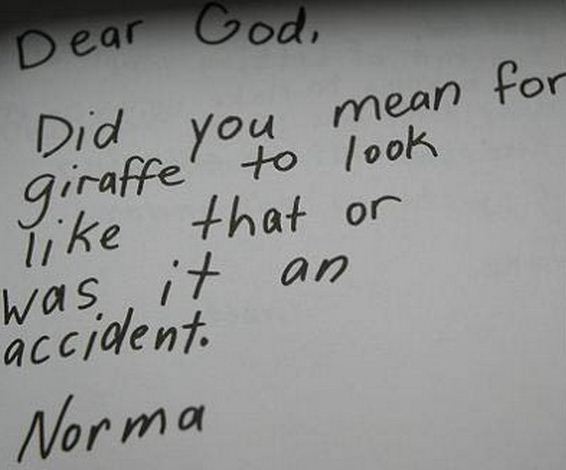 Dear God,
Did you mean for
giraffe to look
like that or
was it an
accident.
Norma